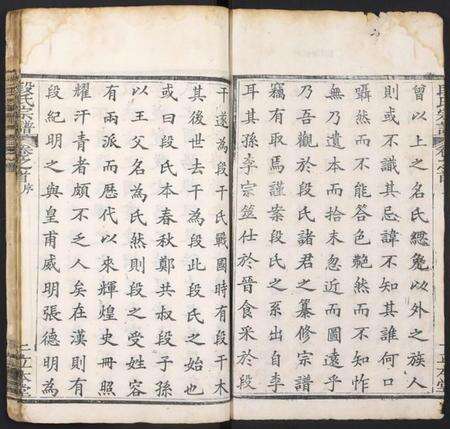 曾以上之名氏緦免以外之族人
或不識其忌諱不知其誰何口
囁然而不能答色赩然而不知怍
無乃遺本而拾末忽近而圖遠乎
乃吾觀於段氏諸君之纂修宗譜
竊有取焉謹案段氏之系出自李
耳其孫李宗筮仕於晉食采於段
干遂為段干氏戰國時有段干木
其後世去干為段此段氏之始也
或曰段氏本春秋鄭共叔段子孫
以王父名為氏然則段之受姓容
有兩派而歷代以來輝煌史冊照
耀汗青者頗不乏人矣在漢則有
段紀明之與皇甫威明張德明為
段氏宗譜
卷之首
序
二立本堂